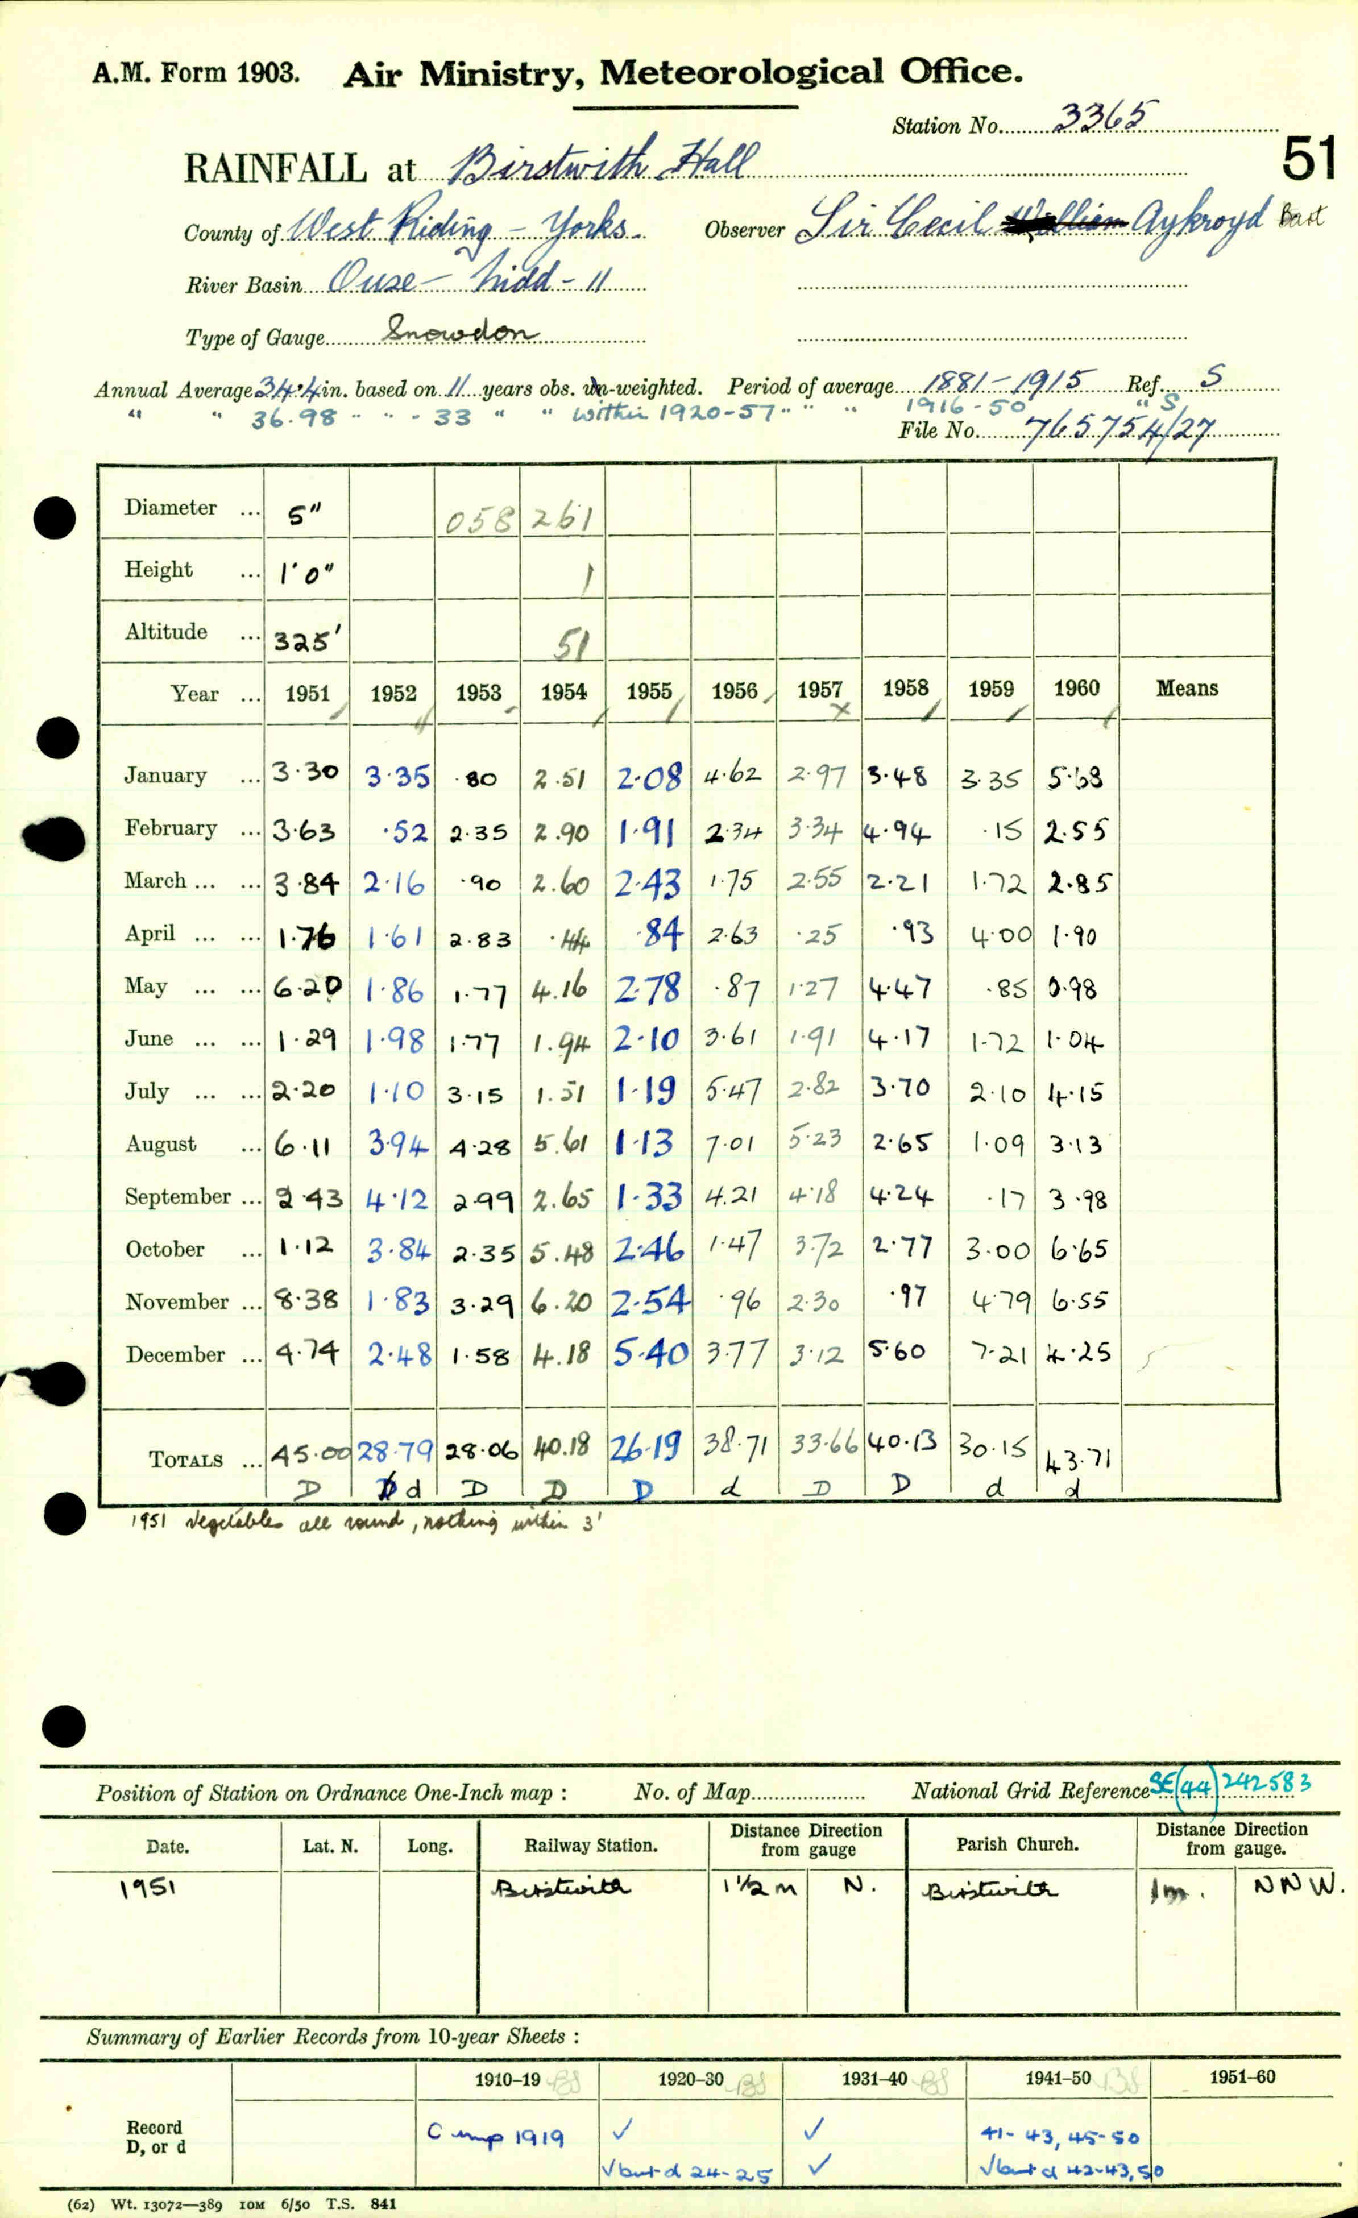 A.M. Form 1903. Air Ministry, Meteorological Office.
Station No. 3365
51
RAINFALL at Birstwith Hall
County of West Riding - Yorks. Observer Sir Cecil William Aykroyd Bart
River Basin Ouse - Nidd - 11
Type of Gauge Snowdon
Annual Average 34.4 in. based on 11 years obs. un-weighted. Period of average 1881-1915 Ref. S
" " 36.98 " " - 33 " " within 1920-57 " " " 1916-50 " S
File No. 765754/27
Diameter ... 5" 058 261
Height ... 1'0" 1
Altitude ... 325' 51
Year ... 1951 1952 1953 1954 1955 1956 1957 1958 1959 1960 Means
January ... 3.30 3.35 .80 2.51 2.08 4.62 2.97 3.48 3.35 5.68
February ... 3.63 .52 2.35 2.90 1.91 2.34 3.34 4.94 .15 2.55
March ... ... 3.84 2.16 .90 2.60 2.43 1.75 2.55 2.21 1.72 2.85
April ... ... 1.76 1.61 2.83 .44 .84 2.63 .25 .93 4.00 1.90
May ... ... 6.20 1.86 1.77 4.16 2.78 .87 1.27 4.47 .85 0.98
June ... ... 1.29 1.98 1.77 1.94 2.10 3.61 1.91 4.17 1.72 1.04
July ... ... 2.20 1.10 3.15 1.51 1.19 5.47 2.82 3.70 2.10 4.15
August ... 6.11 3.94 4.28 5.61 1.13 7.01 5.23 2.65 1.09 3.13
September ... 2.43 4.12 2.99 2.65 1.33 4.21 4.18 4.24 .17 3.98
October ... 1.12 3.84 2.35 5.48 2.46 1.47 3.72 2.77 3.00 6.65
November ... 8.38 1.83 3.29 6.20 2.54 .96 2.30 .97 4.79 6.55
December ... 4.74 2.48 1.58 4.18 5.40 3.77 3.12 5.60 7.21 4.25
TOTALS ... 45.00 28.79 28.06 40.18 26.19 38.71 33.66 40.13 30.15 43.71
D D d D D D d D D d d
1951 Vegetables all round, nothing within 3'
Position of Station on Ordnance One-Inch map : No. of Map National Grid Reference SE(44)242583
Date. Lat. N. Long. Railway Station. Distance from gauge Direction Parish Church. Distance from gauge. Direction
1951 Birstwith 1½ m N. Birstwith 1m. NNW.
Summary of Earlier Records from 10-year Sheets :
1910–19 BS 1920–30 BS 1931–40 BS 1941–50 BS 1951–60
Record D, or d Comp 1919 ✓ ✓ 41-43, 45-50
✓ but d 24-25 ✓ ✓ but d 42-43, 50
(62) Wt. 13072—389 10M 6/50 T.S. 841